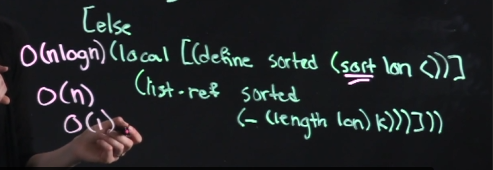 [else
O(nlogn) (local [(define sorted (sort lon <))]
O(n) (list-ref sorted
O(1) (- (length lon) k)))]))